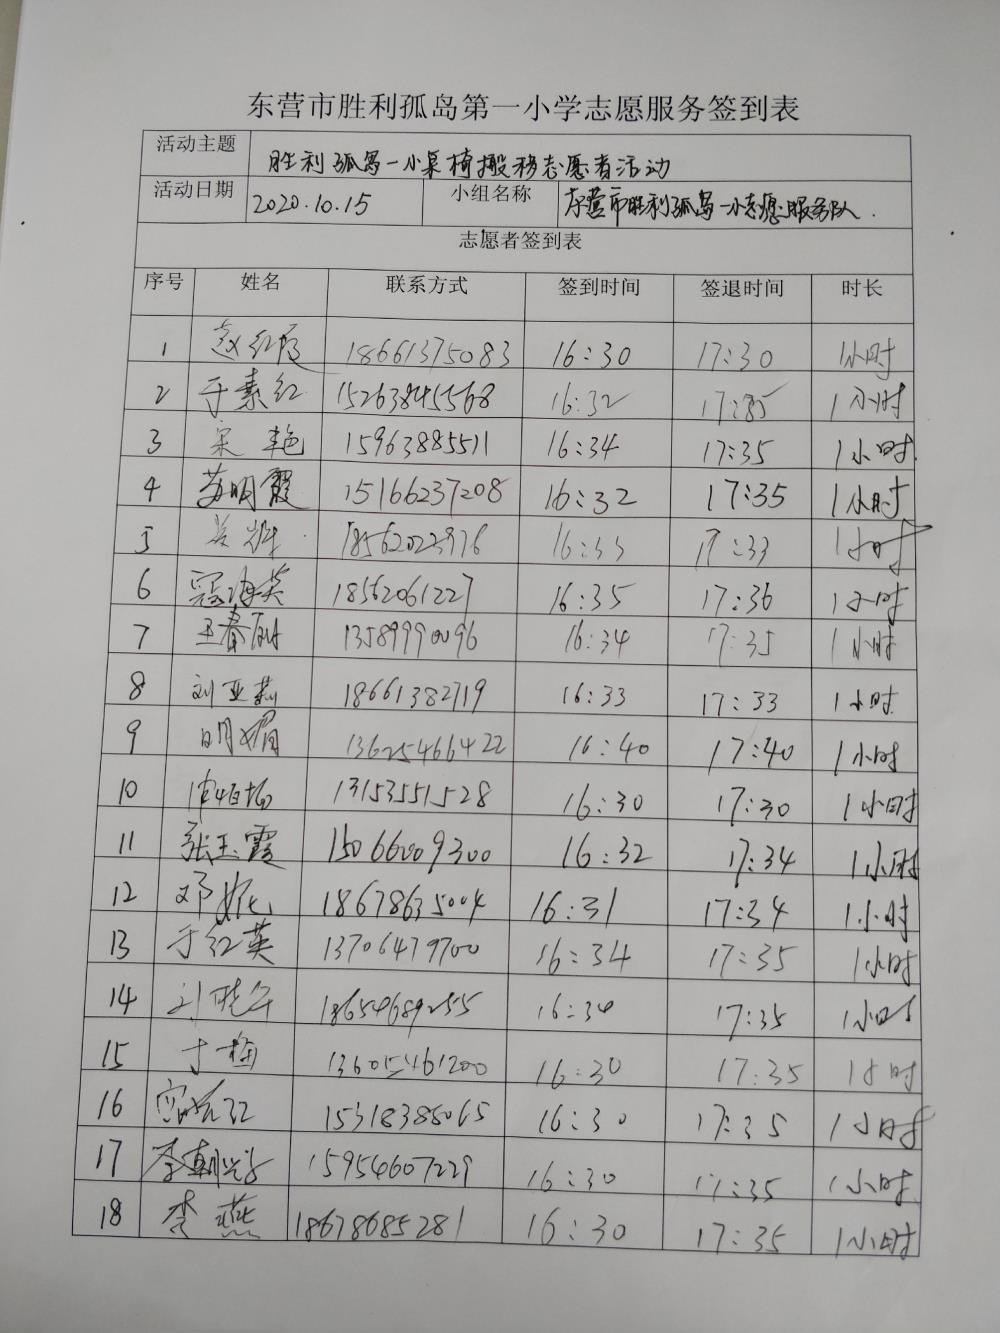 东营市胜利孤岛第一小学志愿服务签到表
活动主题 胜利孤岛一小桌椅搬移志愿者活动
活动日期 2020.10.15 小组名称 东营市胜利孤岛一小志愿服务队.
志愿者签到表
序号 姓名 联系方式 签到时间 签退时间 时长
1 赵红霞 18661375083 16:30 17:30 1小时
2 于素红 15263845568 16:32 17:35 1小时
3 宋艳 15963885511 16:34 17:35 1小时
4 苏明霞 15166237208 16:32 17:35 1小时
5 18562023976 16:33 17:33 1小时
6 寇海英 18562061227 16:35 17:36 1小时
7 王春丽 13589990096 16:34 17:35 1小时
8 刘亚燕 18661382719 16:33 17:33 1小时
9 明媚 13625466422 16:40 17:40 1小时
10 13153551528 16:30 17:30 1小时
11 张玉霞 15066009300 16:32 17:34 1小时
12 邓妮 18678635004 16:31 17:34 1小时
13 于红英 13706479700 16:34 17:35 1小时
14 18654689255 16:34 17:35 1小时
15 于梅 13605461200 16:30 17:35 1小时
16 15318385065 16:30 17:35 1小时
17 15954607229 16:30 17:35 1小时
18 李燕 18678685281 16:30 17:35 1小时